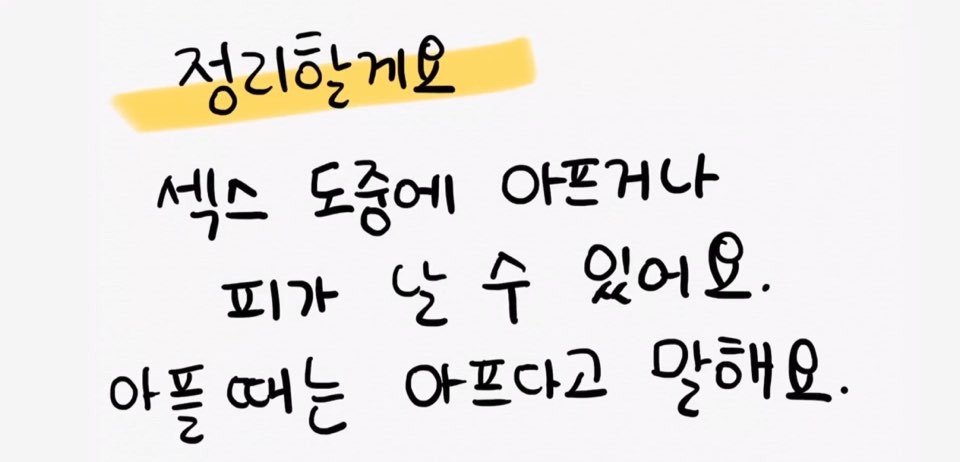 정리할게요
섹스 도중에 아프거나
피가 날 수 있어요.
아플 때는 아프다고 말해요.